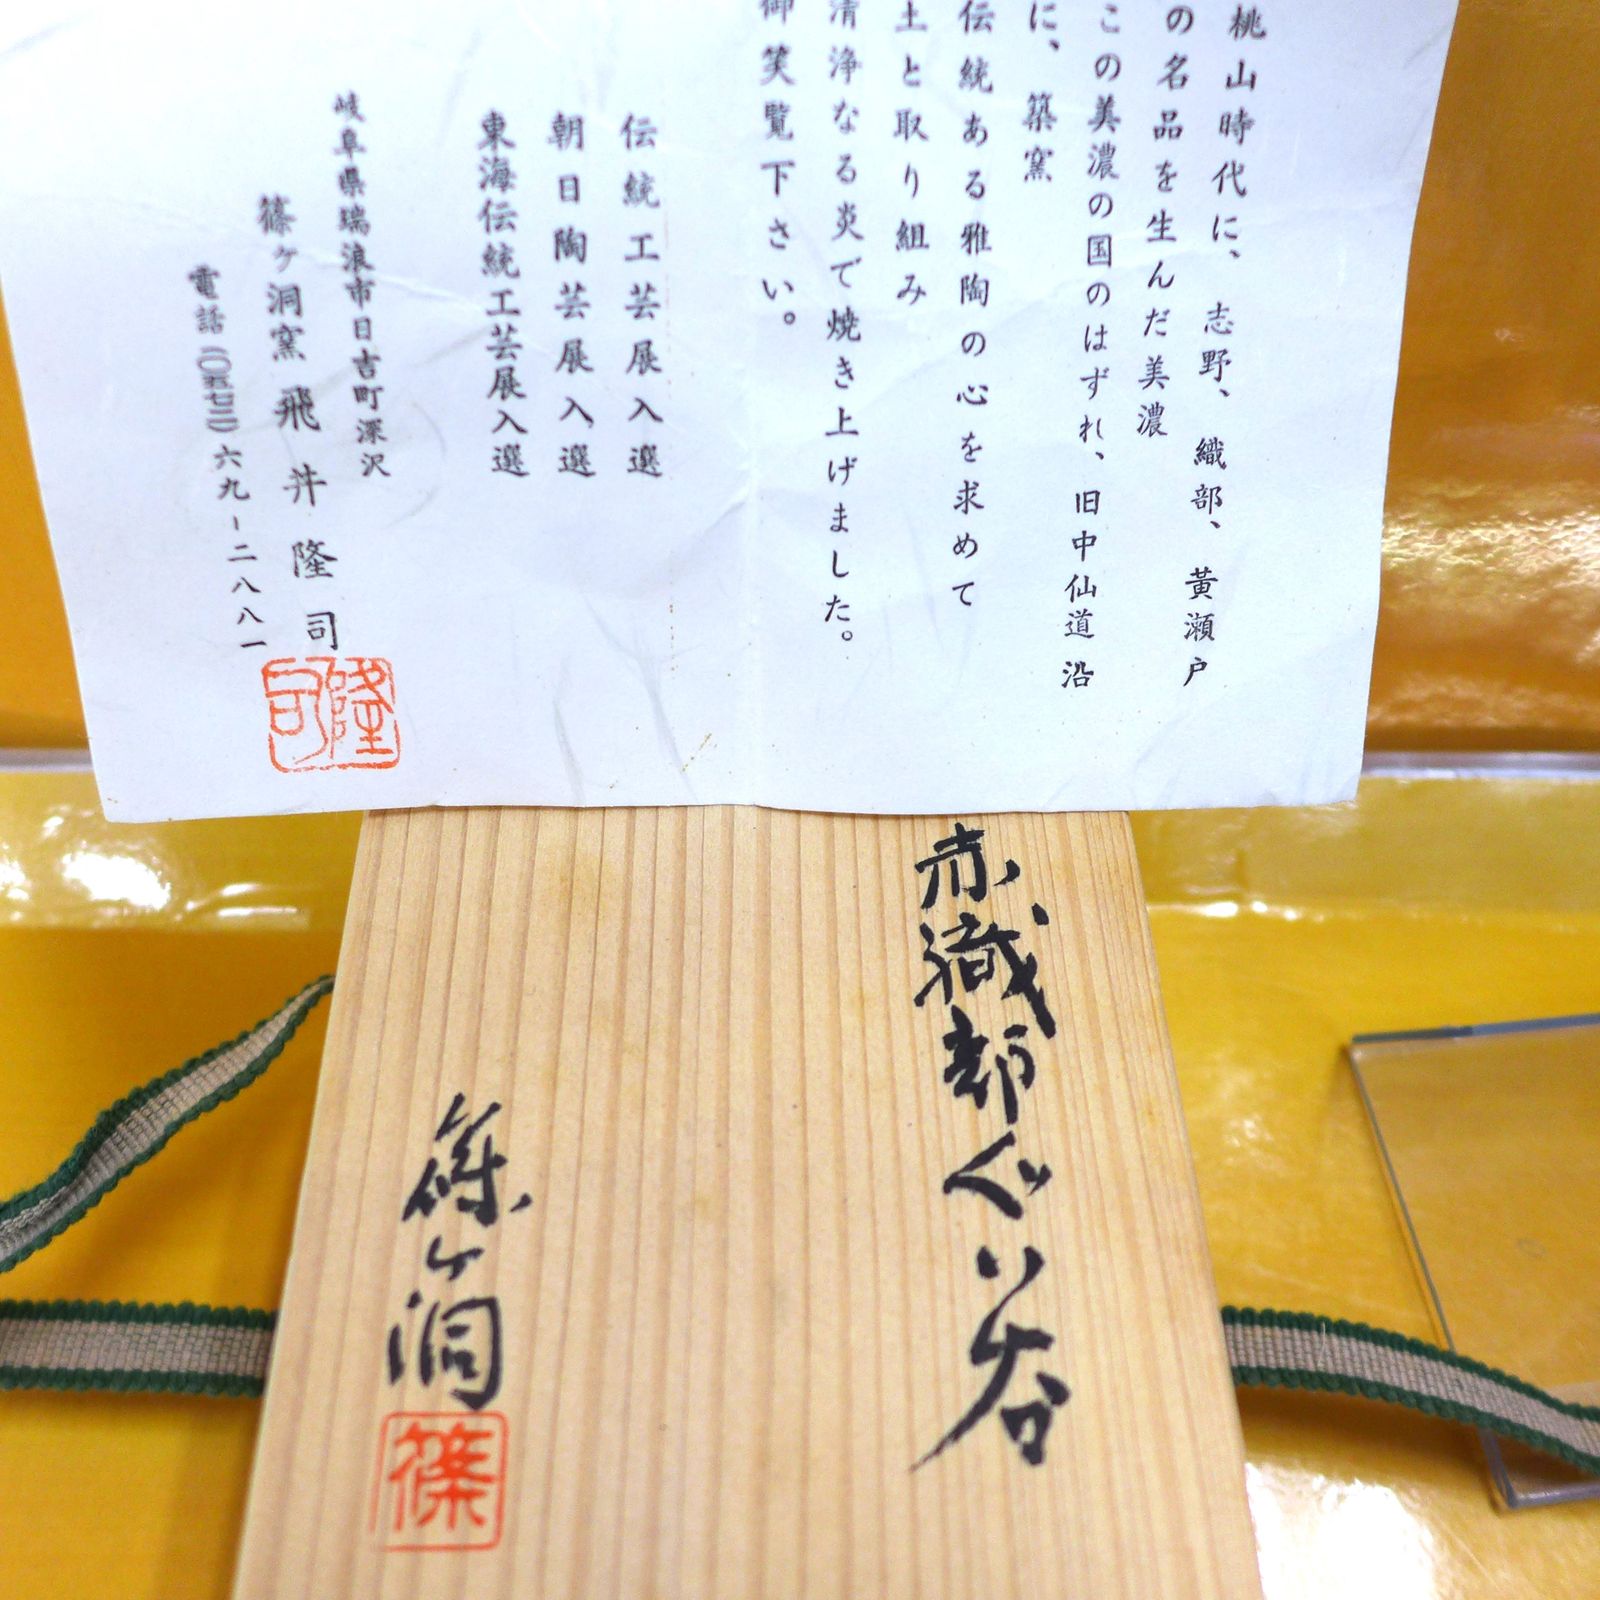 桃山時代に、志野、織部、黃瀬戸
の名品を生んだ美濃
この美濃の国のはずれ、旧中仙道沿
に、築窯
伝統ある雅陶の心を求めて
土と取り組み
清浄なる炎で焼き上げました。
御笑覧下さい。
伝統工芸展入選
朝日陶芸展入選
東海伝統工芸展入選
岐阜県瑞浪市日吉町深沢
篠ヶ洞窯 飛井隆司
電話(〇五七二)六九-二八八一
隆司
赤織部ぐい呑
篠ヶ洞
篠